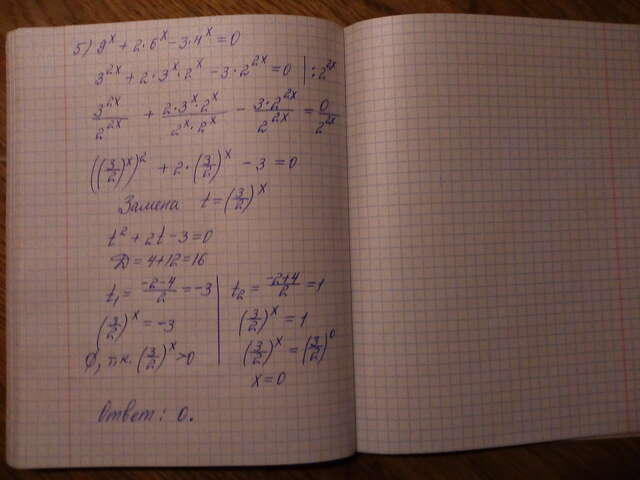 5) 9^x + 2·6^x - 3·4^x = 0
3^{2x} + 2·3^x·2^x - 3·2^{2x} = 0 | :2^{2x}
\frac{3^{2x}}{2^{2x}} + \frac{2·3^x·2^x}{2^x·2^x} - \frac{3·2^{2x}}{2^{2x}} = \frac{0}{2^{2x}}
((\frac{3}{2})^x)^2 + 2·(\frac{3}{2})^x - 3 = 0
Замена t = (\frac{3}{2})^x
t^2 + 2t - 3 = 0
D = 4 + 12 = 16
t_1 = \frac{-2-4}{2} = -3
(\frac{3}{2})^x = -3
∅, т.к. (\frac{3}{2})^x > 0
t_2 = \frac{-2+4}{2} = 1
(\frac{3}{2})^x = 1
(\frac{3}{2})^x = (\frac{3}{2})^0
x = 0
Ответ: 0.